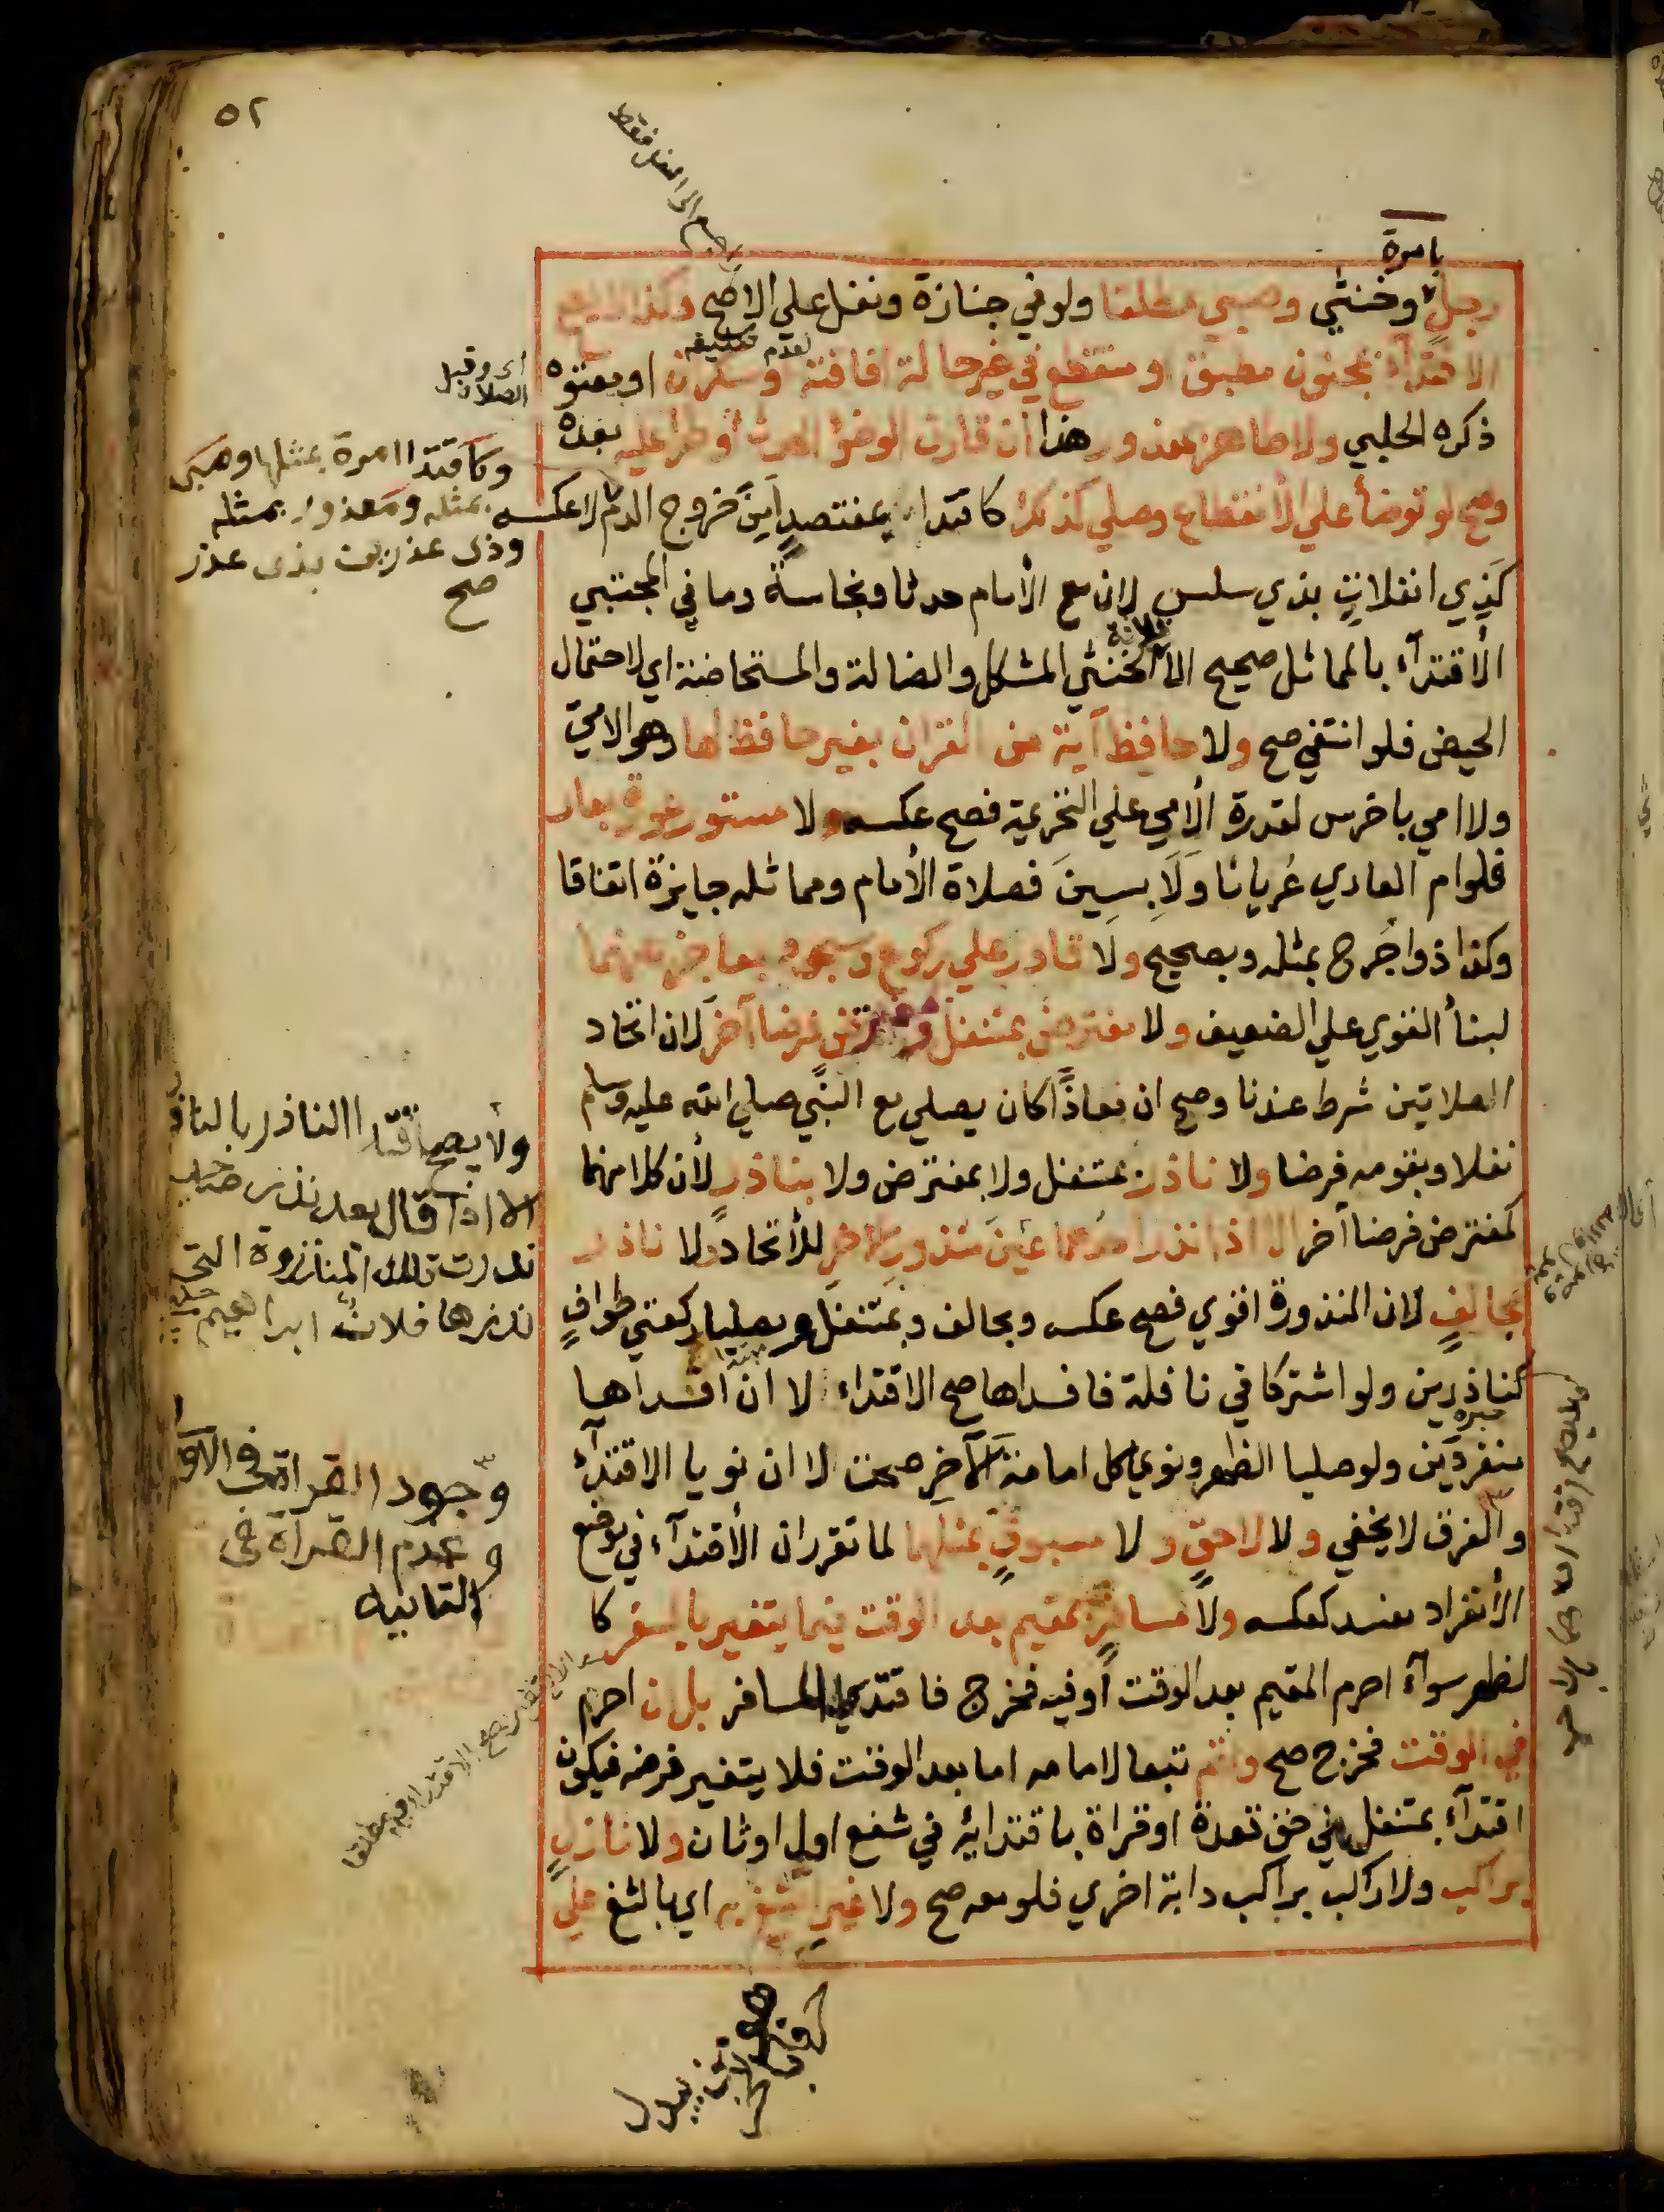 ٥٢
بامرة
رجل وخنثي وصبي مطلقا ولو في جنازة ونفل علي الاصح وكذا لا يصح
الاقتداء بمجنون مطبق او متقطع في غير حالة افاقته وسكران او معتوه
ذكره الحلبي ولا طاهر بمعذور هذا ان قارن الوضؤ الحدث أو طرا عليه بعده
وصح لو توضأ علي الأنقطاع وصلي كذلك كاقتداء بمفتصد امن خروج الدم لا عكسه
كذي انفلات بذي سلس لان مع الأمام حدثا ونجاسة وما في المجتبي
الأقتدآء بالمماثل صحيح الا الخنثي المشكل والضالة والمستحاضة اي لاحتمال
الحيض فلو انتفي صح ولا حافظ آية من القران بغير حافظ لها وهو الامي
ولا امي باخرس لقدرة الأمي علي التحريمة فصح عكسه ولا مستور عورة بعار
فلو ام العاري عريانا ولابسين فصلاة الأمام ومماثله جايزة اتفاقا
وكذا ذو اجرح بمثله وبصحيح ولا قادر علي ركوع وسجود بعاجز عنهما
لبنأ القوي علي الضعيف ولا مفترض بمتنفل وبمفترض فرضا آخر لان اتحاد
الصلاتين شرط عندنا وصح ان معاذا كان يصلي مع النبي صلي الله عليه وسلم
نفلا وبقومه فرضا ولا ناذر بمتنفل ولا بمفترض ولا بناذر لأن كلا منهما
كمفترض فرضا آخر الا اذا نذر احدهما عين منذور الاخر للأتحاد ولا ناذر
بحالف لان المنذورة اقوي فصح عكسه وبحالف وبمتنفل ومصليا ركعتي طواف
كناذرين ولو اشتركا في نافلة فافسداها صح الاقتداء لا ان افسداها
منفردين ولو صليا الظهر ونوي كل امامة الآخر صحت لا ان نويا الاقتدآء
والفرق لا يخفي ولا لاحق ولا مسبوق بمثلهما لما تقرر ان الأقتدآء في موضع
الأنفراد مفسد كعكسه ولا مسافر بمقيم بعد الوقت فيما يتغير بالسفر كا
لظهر سوآء احرم المقيم بعد الوقت أو فيه فخرج فاقتدي المسافر بل ان احرم
في الوقت فخرج صح واتم تبعا لامامه اما بعد الوقت فلا يتغير فرضه فيكون
اقتدآء بمتنفل في حق قعدة او قراة باقتدائه في شفع اول او ثان ولا نازل
براكب ولا راكب براكب دابة اخري فلو معه صح ولا غير الثغ به اي بالثغ علي
لعدم تكليفه
اي وقبل
الصلاة
وكاقتدا امرة بمثلها وصبي
بمثله ومعذور بمثله
وذي عذرين بذي عذر
صح
ولا يصح اقتدا الناذر بالناذر
الا اذا قال بعد نذر صاحبه
نذرت تلك المنذورة التي
نذرها فلان ابراهيم حلبي
وجود القراة في الاو
وعدم القراة في
الثانية